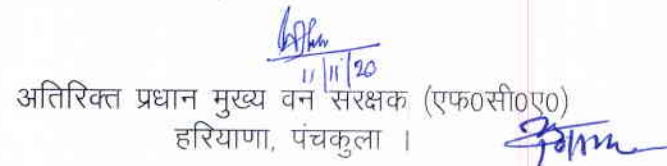 11/11/20
अतिरिक्त प्रधान मुख्य वन संरक्षक (एफ०सी०ए०)
हरियाणा, पंचकुला ।